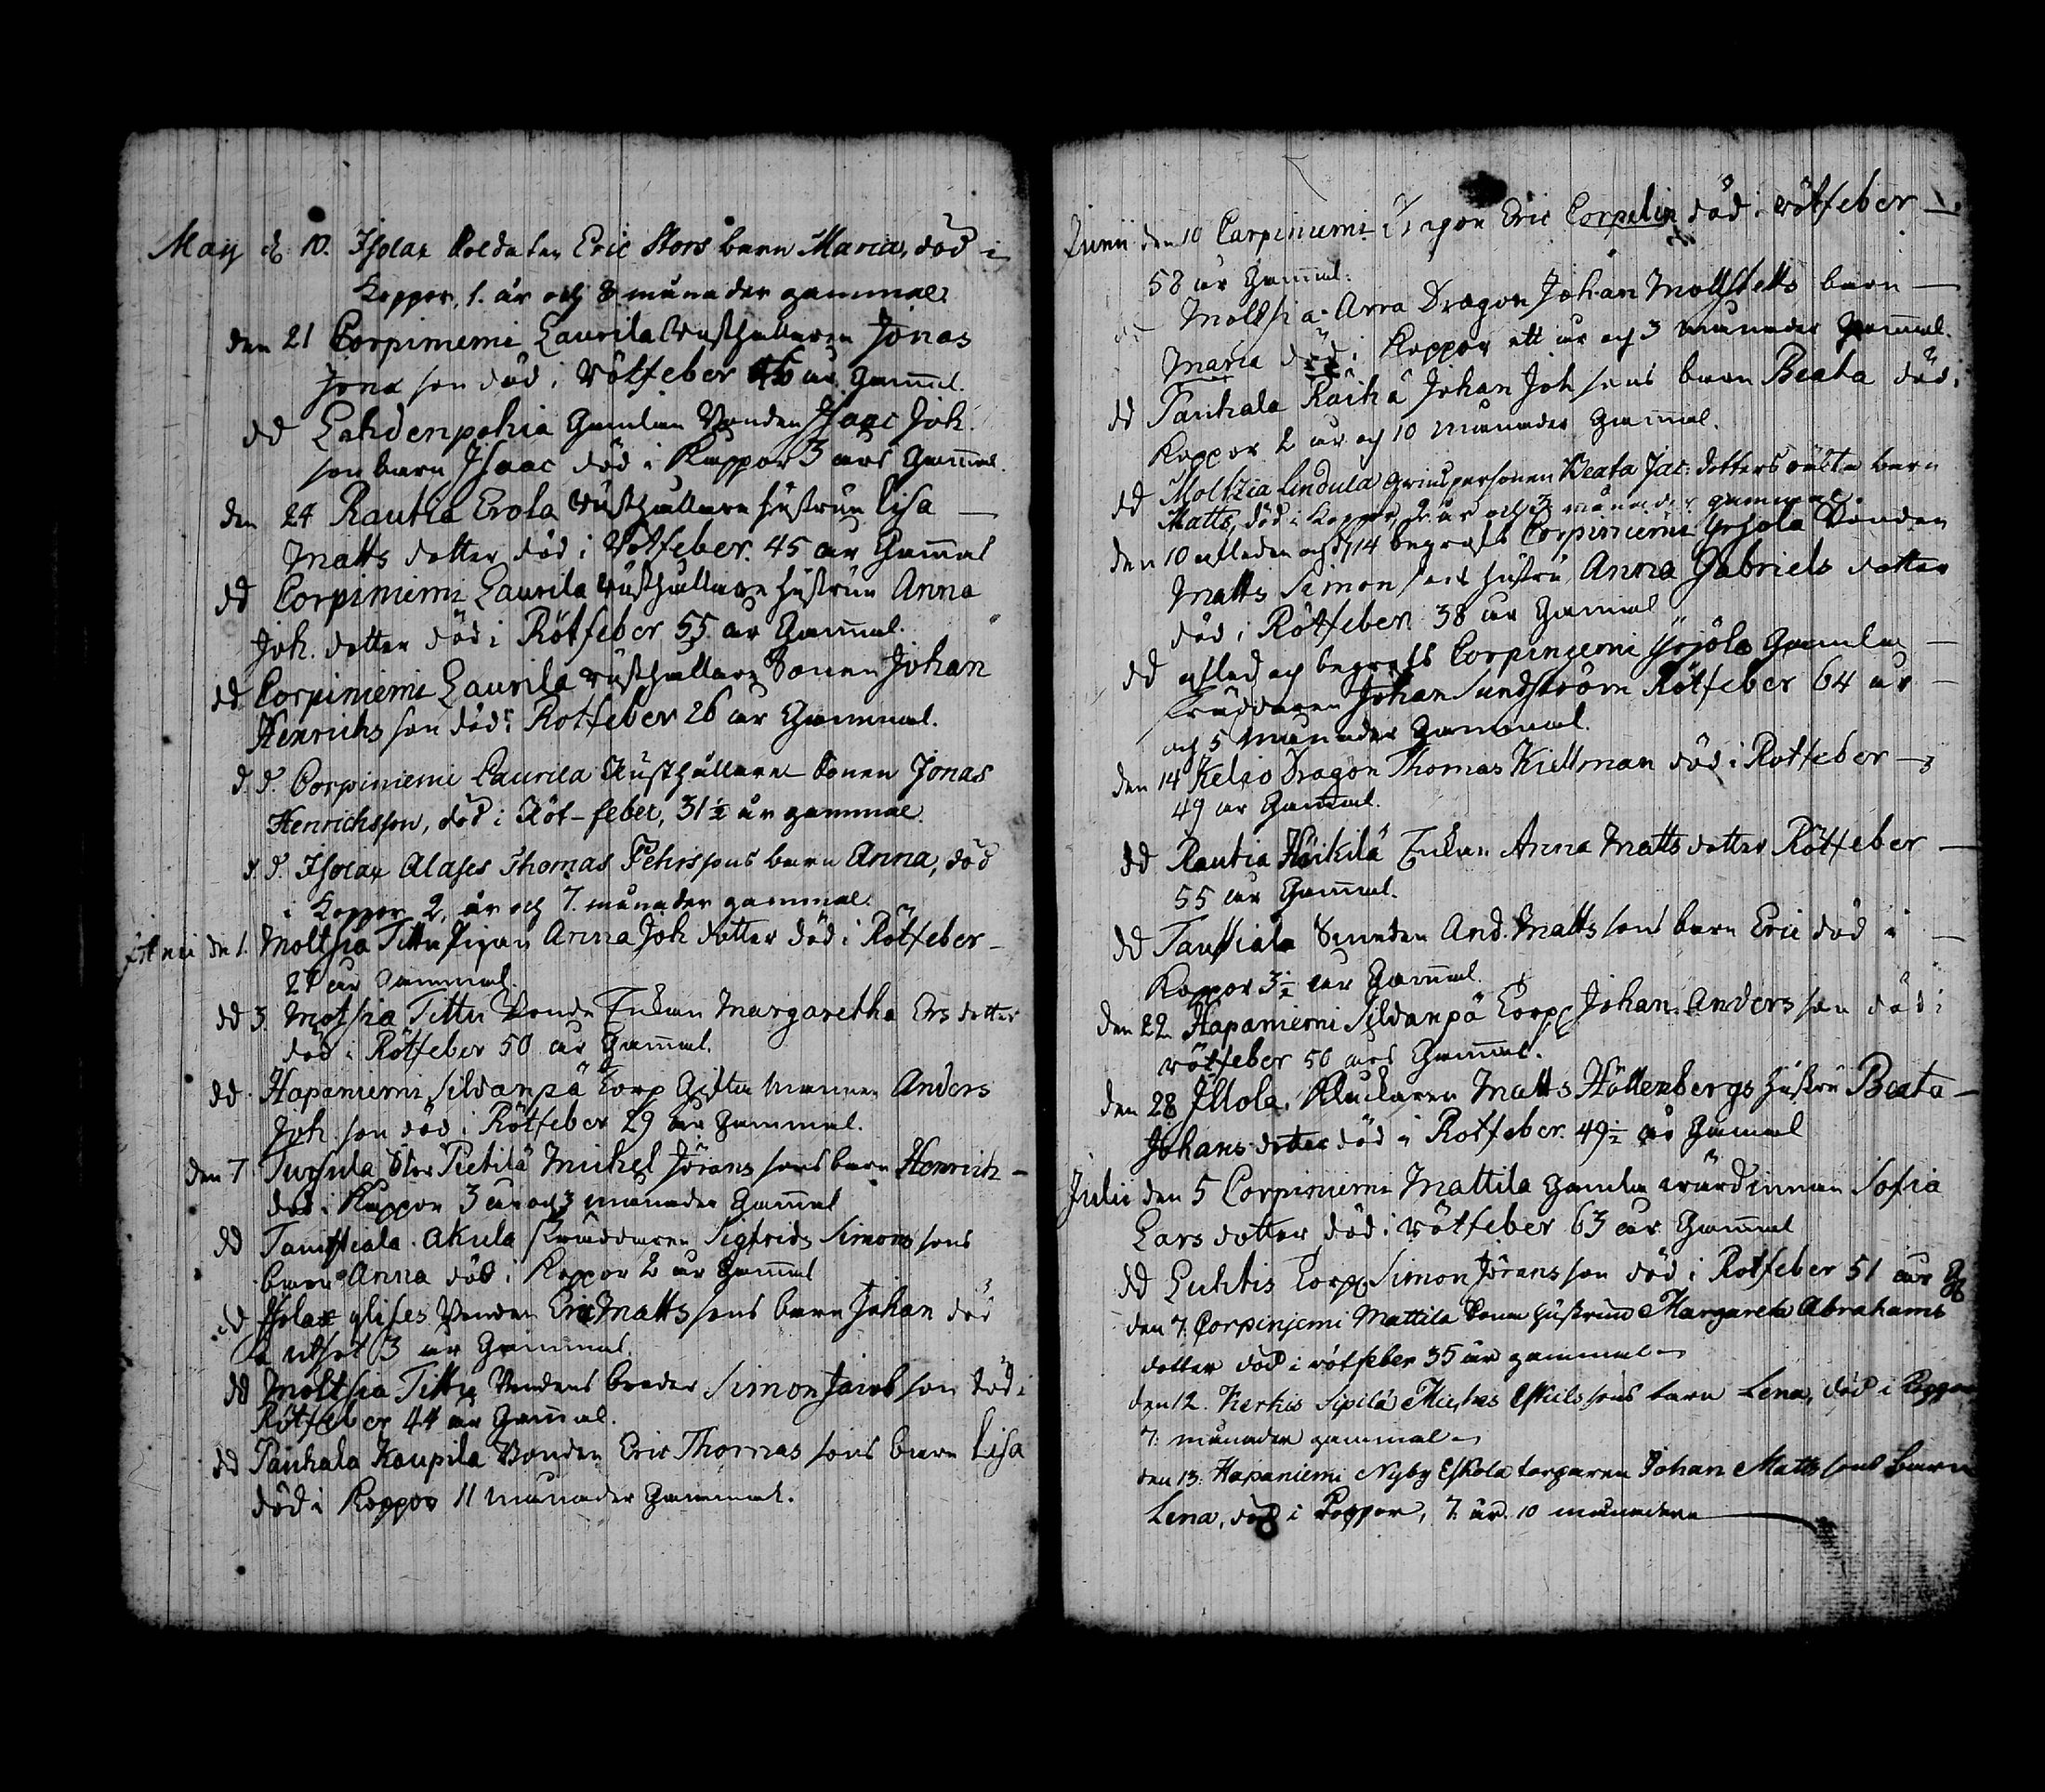 May d. 10. Isolax Soldaten Eric Stors barn Maria, död i
Koppor, 1. år och 8 månader gammal.
den 21 Corpiniemi Laurila Rusthållaren Jonas
Jona son död i Rötfeber år Gamal.
dd Lahdenpohia Gamlan Bonden Isaac Joh.
son barn Isaac död i Koppor 3 års Gamal.
den 24 Rautia Erola Rusthållare hustrun Lisa
Matts dotter död i Rötfeber. 45 år Gamal
dd Corpiniemi Laurila Rusthållare hustrun Anna
Joh. dotter död i Rötfeber 55 år Gamal.
dd Corpiniemi Laurila Rusthållare Sonen Johan
Henrichs son död i Rotfeber 26 år Gammal.
d. d. Corpiniemi Laurila Rusthållare Sonen Jonas
Henrichsson, död i Röt-feber, 31 ½ år gammal.
d. d. Isolax Alases Thomas Pehrssons barn Anna, död
i Koppor 2, år och 7. månader gammal.
Junii den 1. Moltsia Tittu Pigan Anna Joh dotter död i Rötfeber
år Gammal.
dd 3. Motsia Tittu Bonde Enkan Margaretha Ers dotter
död i Rötfeber 50 år Gamal.
dd Hapaniemi Sildanpä Torp Gifta Mannen Anders
Joh. son död i Rötfeber 29 år Gammal.
den 7 Tursula Stor Pietilä Michel Jörans sons barn Henrich
död i Koppor 3 år och 3 månader Gamal
dd Tautsiala Akula Skräddaren Sigfrids Simons sons
barn Anna död i Koppor 2 år Gamal
dd Isolax Bonden Eric Matts sons barn Johan död
3 år Gammal.
dd Moltsia Tittu Bondens broder Simon Jacob son död i
Rötfeber 44 år Gamal.
dd Panhala Kaupila Bonden Eric Thomas sons barn Lisa
död i Koppor 11 månader Gammal.
Junii den 10 Corpiniemi Dragon Eric Corpelin död i rötfeber
58 år Gamal.
Moltsia Arra Dragon Johan barn
Maria död i Koppor ett år och 3 månader Gamal.
dd Panhala Räihä Johan Joh sons barn Beata död i
Koppor 2 år och 10 månader Gamal.
dd Moltzia Lindula Beata Jac: dotters barn
Matts, död i Koppor, 2 år och 3 månader gammal.
den 10 afleden och 14 begrafs Corpiniemi Yrjola Bonden
Matts Simon sons hustru Anna Gabriels dotter
död i Rötfeber. 38 år Gamal
dd afled och begrafs Corpiniemi Yrjölä Gamla
Skräddaren Johan Sundström Rötfeber 64 år
och 5 månader Gammal.
den 14 Kelio Dragon Thomas Kiellman död i Rotfeber
49 år Gamal.
dd Rautia Häikilä Enkan Anna Matts dotter Rötfeber
55 år Gamal.
dd Tautsiala Bonden And. Matts sons barn Eric död i
Koppor 3 ½ år Gamal.
den 22 Hapaniemi Sildanpä Torp. Johan Anders son död i
rötfeber 50 års Gamal.
den 28 Illola, Klockaren Matts Höllenbergs hustru Beata
Johans dotter död i Rotfeber. 49 ½ år Gamal
Julii den 5 Corpiniemi Mattila Gamla wärdinnan Sofia
Lars dotter död i rötfeber 63 år Gamal
dd Luhtis Torp. Simon Jörans son död i Rotfeber 51 år G
den 7. Corpiniemi Mattila Sone hustrun Margareta Abrahams
dotter död i rötfeber 35 år gammal
den 12. Kerkis Sipilä Michas Eskels sons barn Lena, död i Koppor
7. månader gammal
den 13. Hapaniemi Nyby Eskola torparen Johan Matts sons Barn
Lena, död i Koppor, 7. år. 10 månader